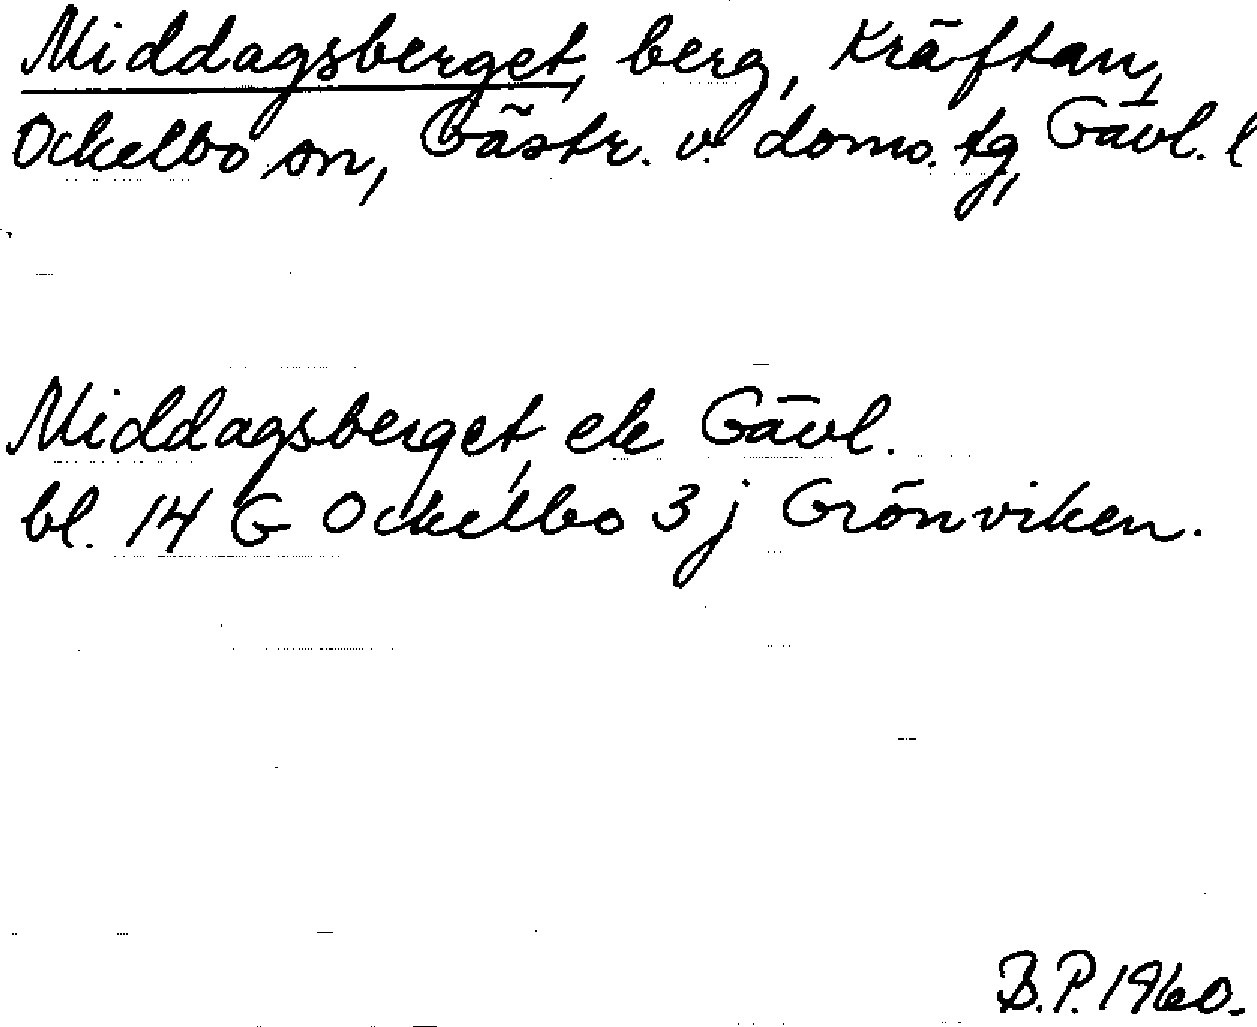 Middagsberget, berg, Kräftan,
Ockelbo sn, Gästr. v. doms. tg, Gävl. l
Middagsberget, ek Gävl.
bl. 14 G Ockelbo 3 j Grönviken.
B.P. 1960.